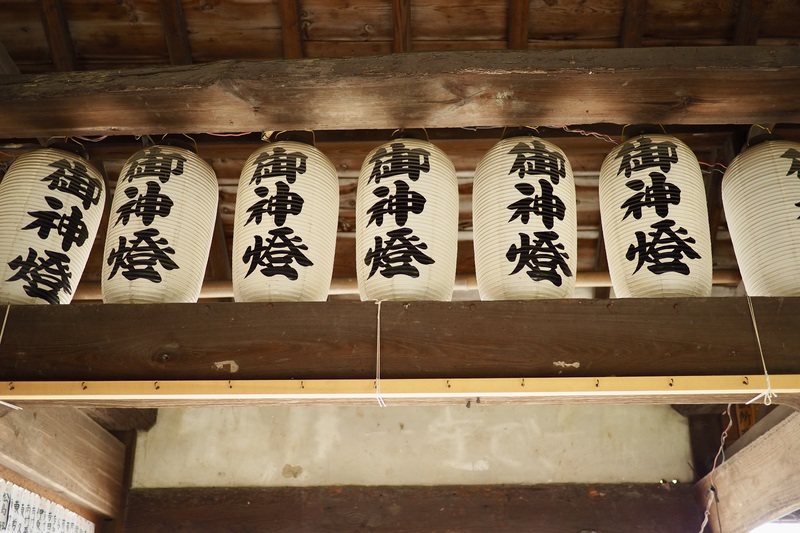 御神燈
御神燈
御神燈
御神燈
御神燈
御神燈